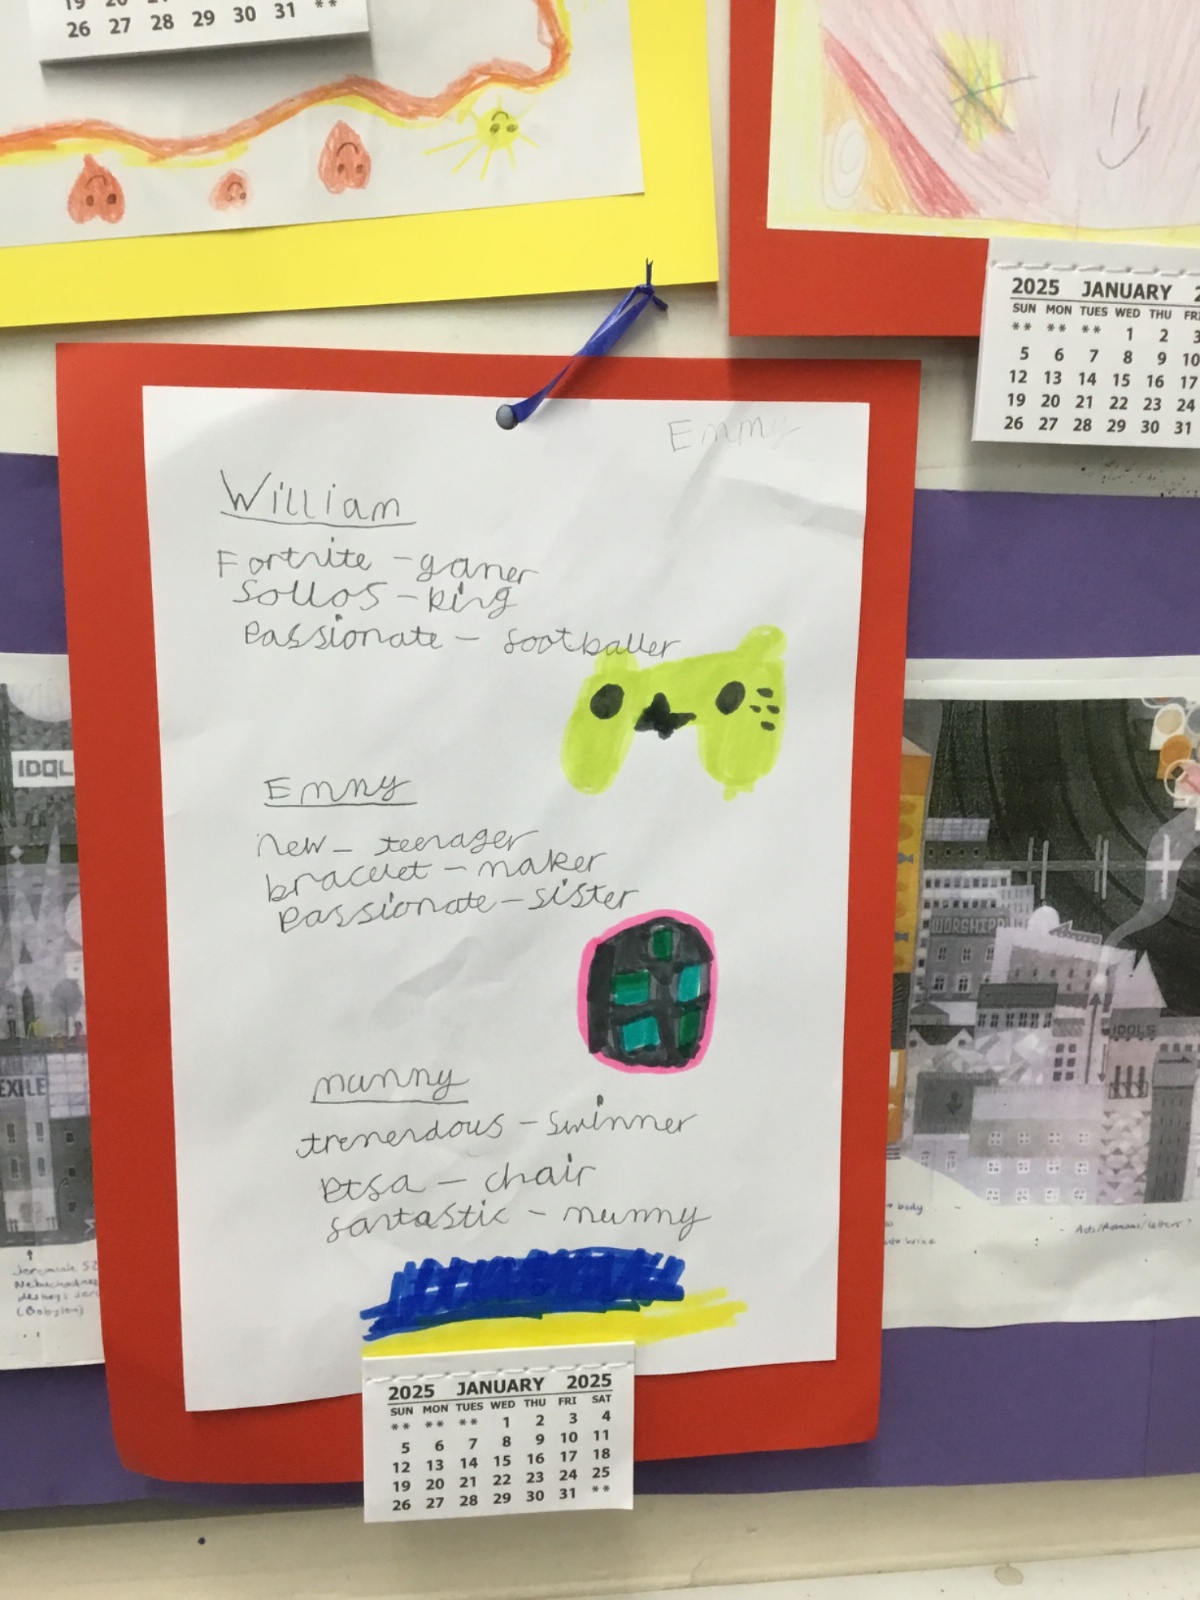 19 20
26 27 28 29 30 31 **
2025 JANUARY 2
SUN MON TUES WED THU FRI
** ** ** 1 2 3
5 6 7 8 9 10
12 13 14 15 16 17
19 20 21 22 23 24
26 27 28 29 30 31
Emmy
William
Fortnite - gamer
Sollos - king
Passionate - footballer
Emmy
new - teenager
bracelet - maker
Passionate - sister
mummy
tremendous - swimmer
Ptsa - chair
fantastic - mummy
2025 JANUARY 2025
SUN MON TUES WED THU FRI SAT
** ** ** 1 2 3 4
5 6 7 8 9 10 11
12 13 14 15 16 17 18
19 20 21 22 23 24 25
26 27 28 29 30 31 **
IDOL
EXILE
Jeremiah 52
(Babylon)
WORSHIP
IDOLS
body
wine